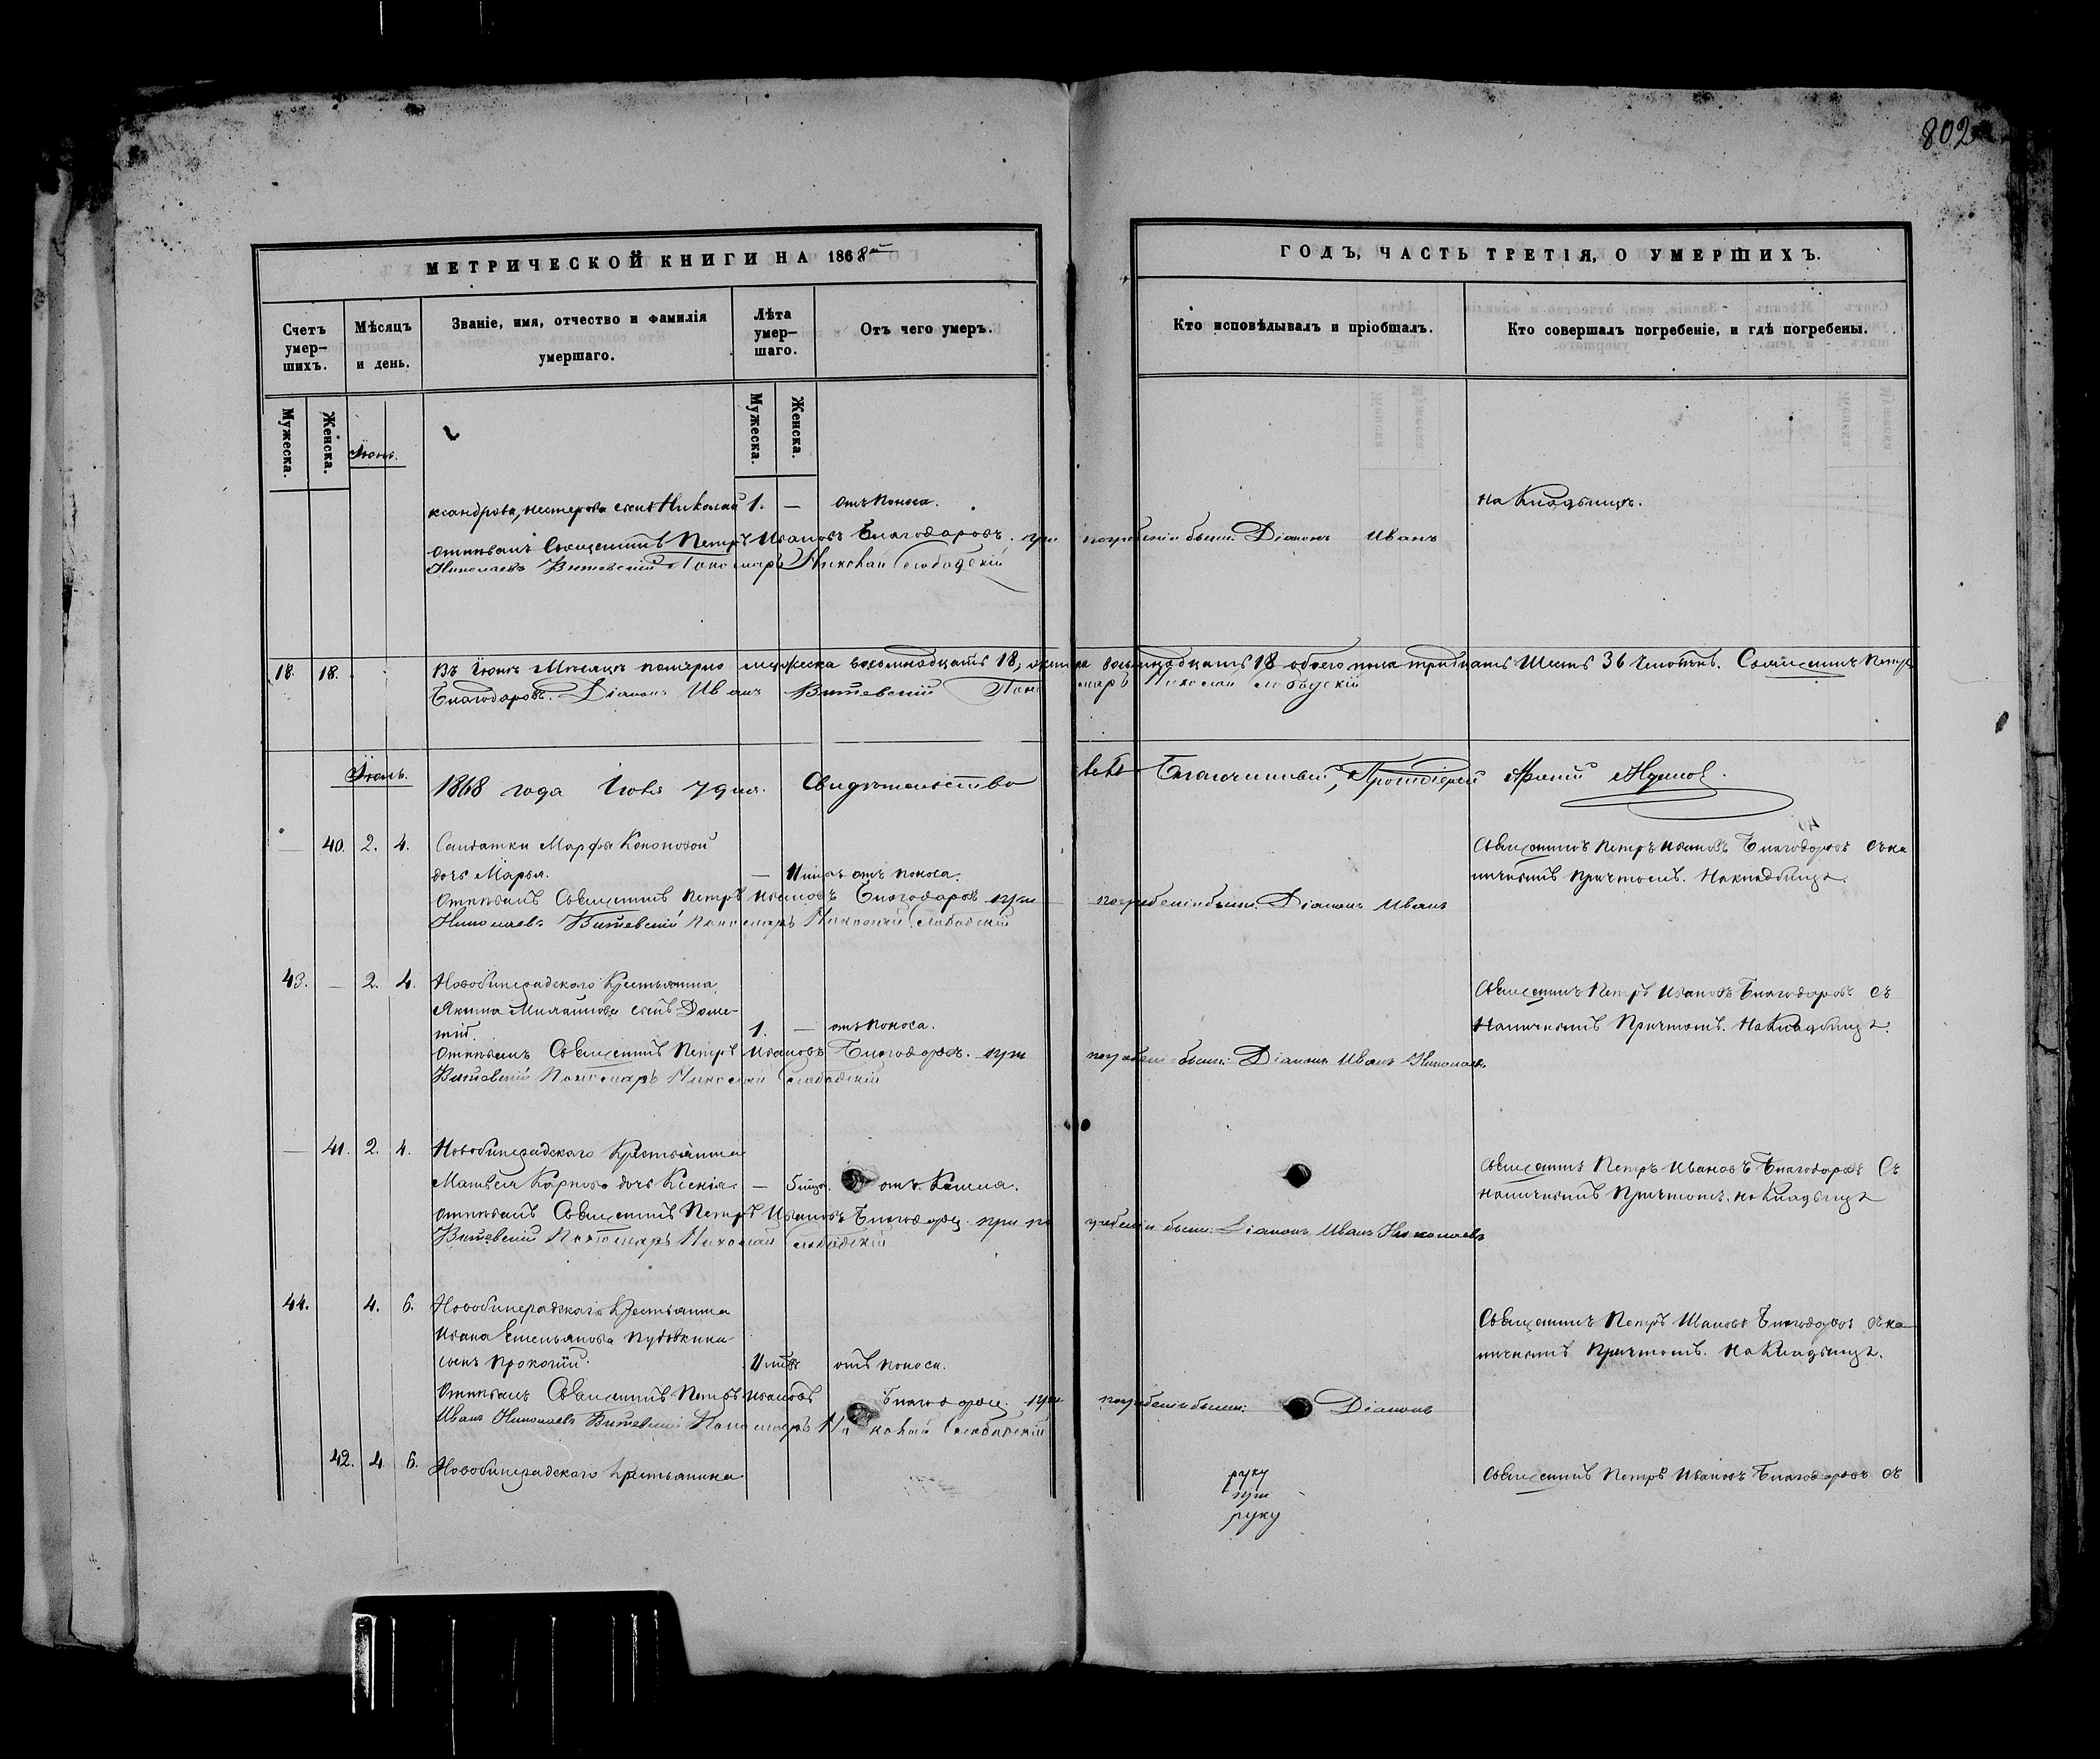 802
МЕТРИЧЕСКОЙ КНИГИ НА 1868й
ГОДЪ, ЧАСТЬ ТРЕТІЯ, О УМЕРШИХЪ.
Счетъ умер-шихъ.
Мѣсяцъ и день.
Званіе, имя, отчество и фамилія умершаго.
Лѣта умер-шаго.
Отъ чего умеръ.
Кто исповѣдывалъ и пріобщалъ.
Кто совершалъ погребеніе, и гдѣ погребены.
Мужеска.
Женска.
Мужеска.
Женска.
Іюнь.
ксандрова, Нестерова сынъ Николай 1. — отъ поноса. На Кладбищѣ.
Отпѣвалъ Священникъ Петръ Ивановъ Благодаровъ. при погребеніи были: Діаконъ Иванъ
Николаевъ Витевскій Пономарь Николай Слободскій
18. 18. Въ Іюнѣ Мѣсяцѣ померло мужеска восемнадцать 18, женска восемнадцать 18 обоего пола тридцать шесть 36 человѣкъ. Священникъ Петръ
Благодаровъ. Діаконъ Иванъ Витевскій Пономарь Николай Слободскій
Іюль.
1868 года Іюля 7 дня. Свидѣтельство Благочинный, Протоіерей
— 40. 2. 4. Солдатки Марфы Кононовой Священникъ Петръ Ивановъ Благодаровъ съ на
дочь Марья. — 11 мѣс. отъ поноса. личнымъ причтомъ. На кладбищѣ.
Отпѣвалъ Священникъ Петръ Ивановъ Благодаровъ при погребеніи были: Діаконъ Иванъ
Николаевъ Витевскій Пономарь Николай Слободскій
43. — 2. 4. Крестьянина Священникъ Петръ Ивановъ Благодаровъ съ
сынъ Доме- наличнымъ Причтомъ. На Кладбищѣ.
тій. 1. — отъ поноса.
Отпѣвалъ Священникъ Петръ Ивановъ Благодаровъ. при погребеніи были: Діаконъ Иванъ Николаевъ
Витевскій Пономарь Николай Слободскій
— 41. 2. 4. Крестьянина Священникъ Петръ Ивановъ Благодаровъ Съ
Матвея Карпова дочь Ксенія. — 5 мѣс. отъ Кашля. наличнымъ Причтомъ. на Кладбищѣ
Отпѣвалъ Священникъ Петръ Ивановъ Благодаров. при погребеніи были: Діаконъ Иванъ Николаевъ
Витевскій Пономарь Николай Слободскій
44. 4. 6. Крестьянина Священникъ Петръ Ивановъ Благодаровъ съ на-
Ивана Емельянова Пудовкина личнымъ Причтомъ. На Кладбищѣ.
сынъ Прокопій. 11 мѣс. отъ поноса.
Отпѣвалъ Священникъ Петръ Ивановъ Благодаров. при погребеніи были: Діаконъ
Иванъ Николаевъ Витевскій Пономарь Николай Слободскій
42. 4 6. Крестьянина Священникъ Петръ Ивановъ Благодаровъ съ
руку
при
руку